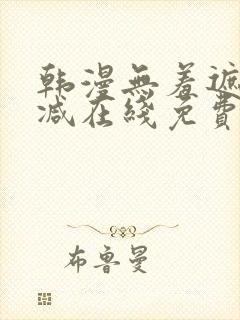 韩漫無羞遮
减在綫免費
布鲁曼